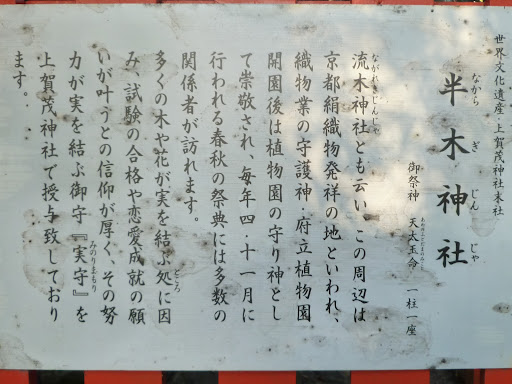 世界文化遺産・上賀茂神社末社
半木神社
なからぎじんじゃ
御祭神 天太玉命 一柱一座
あめのふとだまのみこと
ながれぎじんじゃ
流木神社とも云い、この周辺は
京都絹織物発祥の地といわれ、
織物業の守護神・府立植物園
開園後は植物園の守り神とし
て崇敬され、毎年四・十一月に
行われる春秋の祭典には多数の
関係者が訪れます。
多くの木や花が実を結ぶ処に因
ところ
み、試験の合格や恋愛成就の願
いが叶うとの信仰が厚く、その努
力が実を結ぶ御守『実守』を
みのりまもり
上賀茂神社で授与致しており
ます。